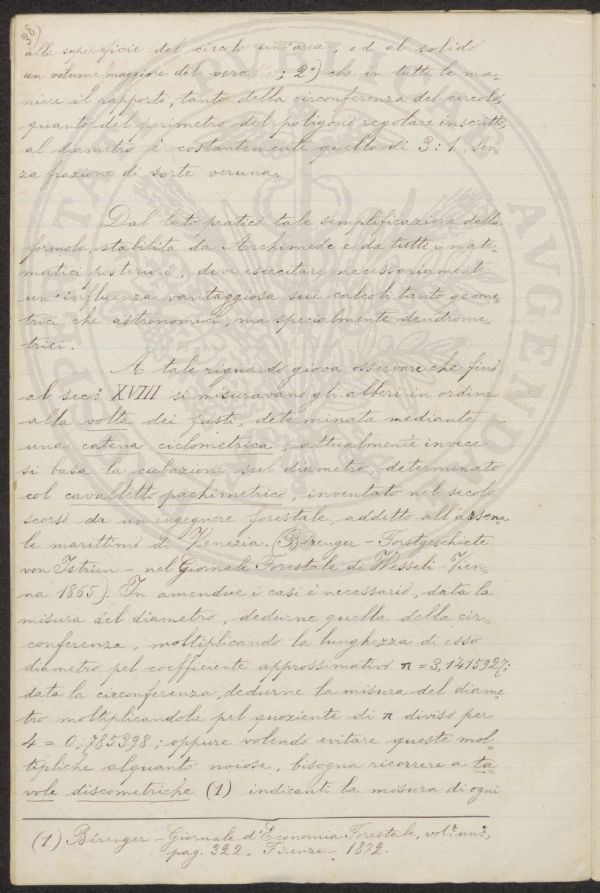 38)
alla superficie del circolo un'area, ed al solido
un volume maggiore del vero : 2°) che in tutte le ma=
niere il rapporto, tanto della circonferenza del circolo,
quanto del perimetro del poligono regolare inscritto,
al diametro è costantemente quello di 3:1, sen=
za frazione di sorte veruna.
Dal lato pratico tale semplificazione della
formola, stabilita da Archimede e da tutti i mate=
matici posteriori, deve esercitare necessariamente
un'influenza vantaggiosa sui calcoli tanto geome=
trici che astronomici, ma specialmente dendrome=
trici.
A tale riguardo giova osservare che fino
al sec.° XVIII si misuravano gli alberi in ordine
alla volta dei fusti, determinata mediante
una catena ciclometrica, attualmente invece
si basa la cubazione sul diametro, determinato
col cavalletto pachimetrico, inventato nel secolo
scorso da un ingegnere forestale, addetto all'arsena=
le marittimo di Venezia. (Bérenger - Forstgeschicte
von Istrien - nel Giornale Forestale di Wesseli - Vien=
na 1865). In amendue i casi è necessario, data la
misura del diametro, dedurne quella della cir=
conferenza, moltiplicando la lunghezza di esso
diametro pel coefficiente approssimativo π = 3,1415927;
data la circonferenza, dedurne la misura del diame=
tro moltiplicandola pel quoziente di π diviso per
4 = 0,785398; oppure volendo evitare queste mol=
tipliche alquanto noiose, bisogna ricorrere a ta=
vole discometriche (1) indicanti la misura di ogni
(1) Bérenger - Giornale d'Economia Forestale, vol.° un.°,
pag. 322. Firenze - 1872.
PVBLICAE
AVGENDAE